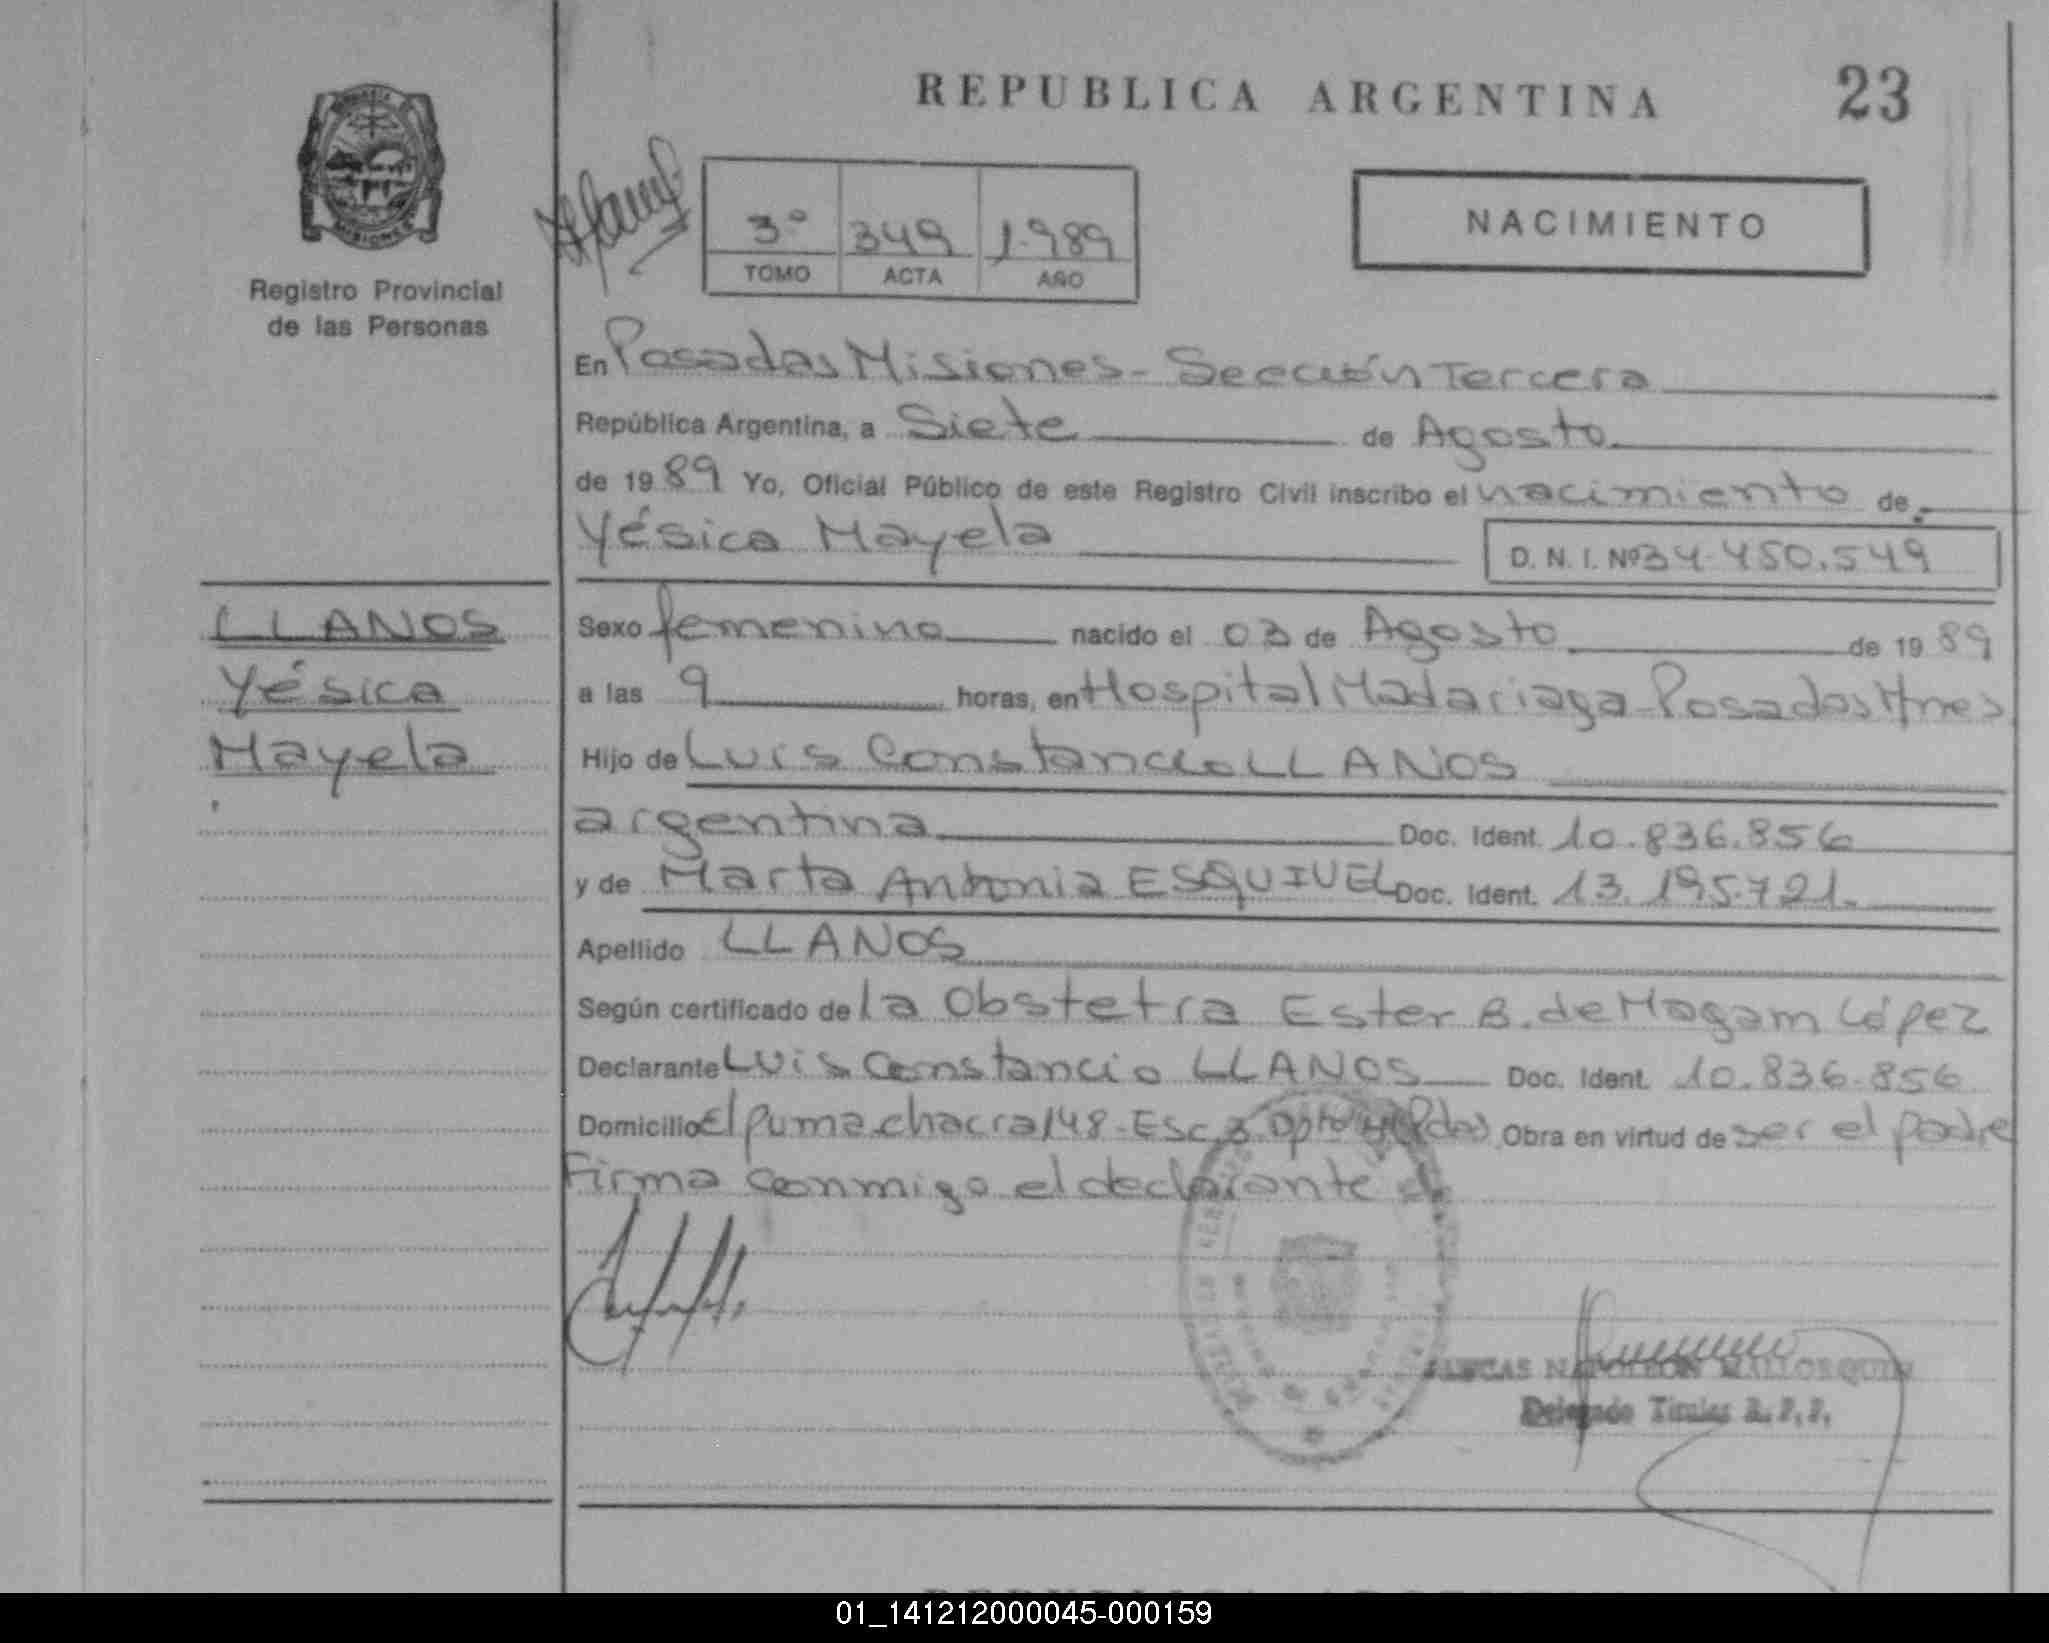 REPUBLICA ARGENTINA
23
MISIONES
Registro Provincial
de las Personas
3º 349 1.989
TOMO ACTA AÑO
NACIMIENTO
En Posadas Misiones - Sección Tercera
República Argentina, a Siete de Agosto
de 1989 Yo, Oficial Público de este Registro Civil inscribo el nacimiento de:
Yésica Mayela
D. N. I. Nº 34.450.549
LLANOS
Yésica
Mayela
Sexo femenino nacido el 03 de Agosto de 1989
a las 9 horas, en Hospital Madariaga - Posadas Mnes
Hijo de Luis Constancio LLANOS
argentina Doc. Ident. 10.836.856
y de Marta Antonia ESQUIVEL Doc. Ident. 13.195.721.
Apellido LLANOS
Según certificado de la Obstetra Ester B. de Magam López
Declarante Luis Constancio LLANOS Doc. Ident. 10.836.856
Domicilio El Puma chacra 148 - Esc. 3 Dpto Pdas Obra en virtud de ser el padre
Firma conmigo el declarante
NAPOLEON MALLORQUIN
Delegado Titular R. P. P.
01_141212000045-000159